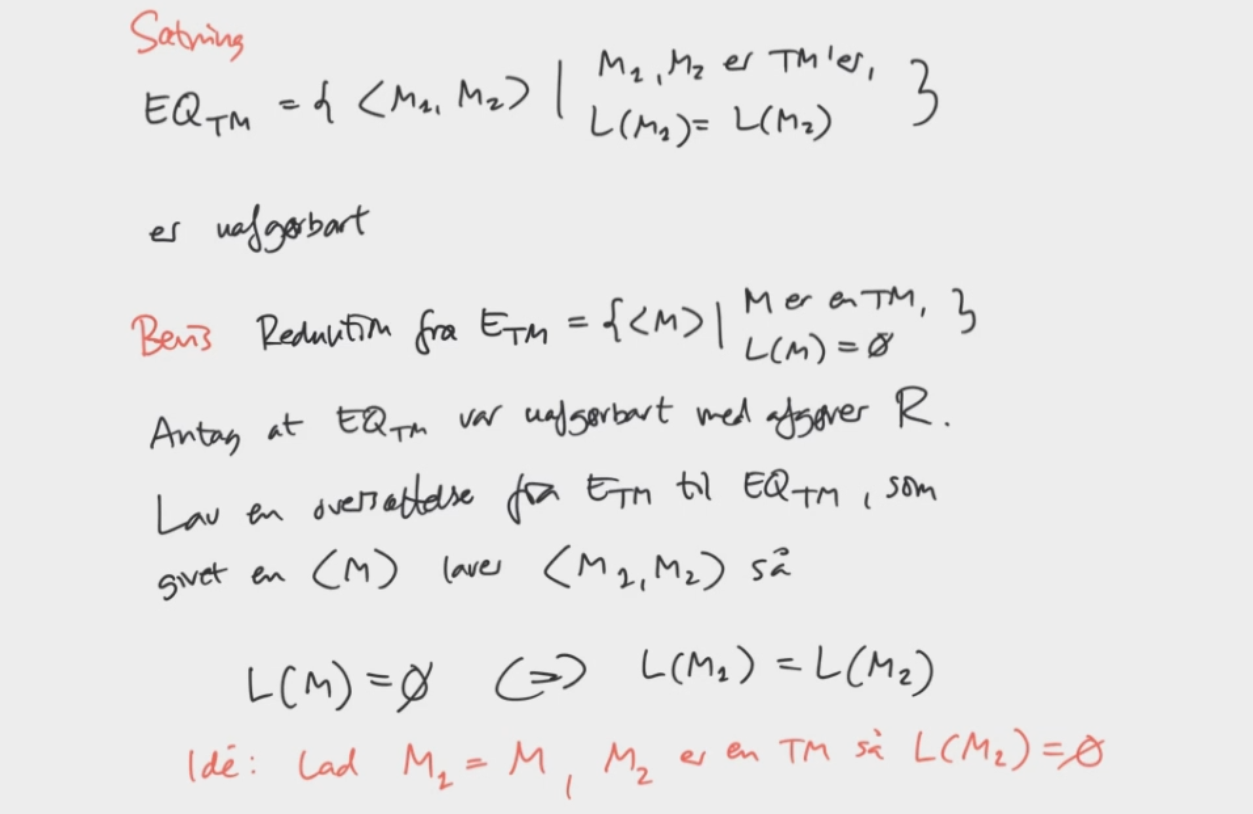 Sætning
EQ_TM = { <M₁, M₂> | M₁, M₂ er TM'er,
L(M₁) = L(M₂) }
er uafgørbart
Bevis Reduktion fra E_TM = {<M> | M er en TM, }
L(M) = ∅
Antag at EQ_TM var uafgørbart med afgører R.
Lav en oversættelse fra E_TM til EQ_TM, som
givet en <M> laver <M₁, M₂> så
L(M) = ∅ <=> L(M₁) = L(M₂)
Idé: Lad M₁ = M, M₂ er en TM så L(M₂) = ∅